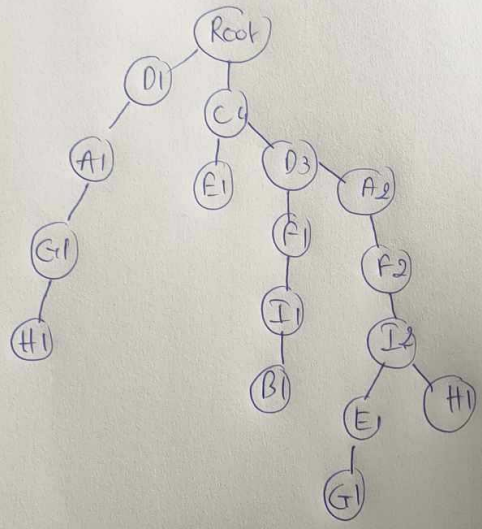 Root
D1
C4
A1
E1
D3
A2
G1
F1
F2
H1
I1
I2
B1
E1
H1
G1